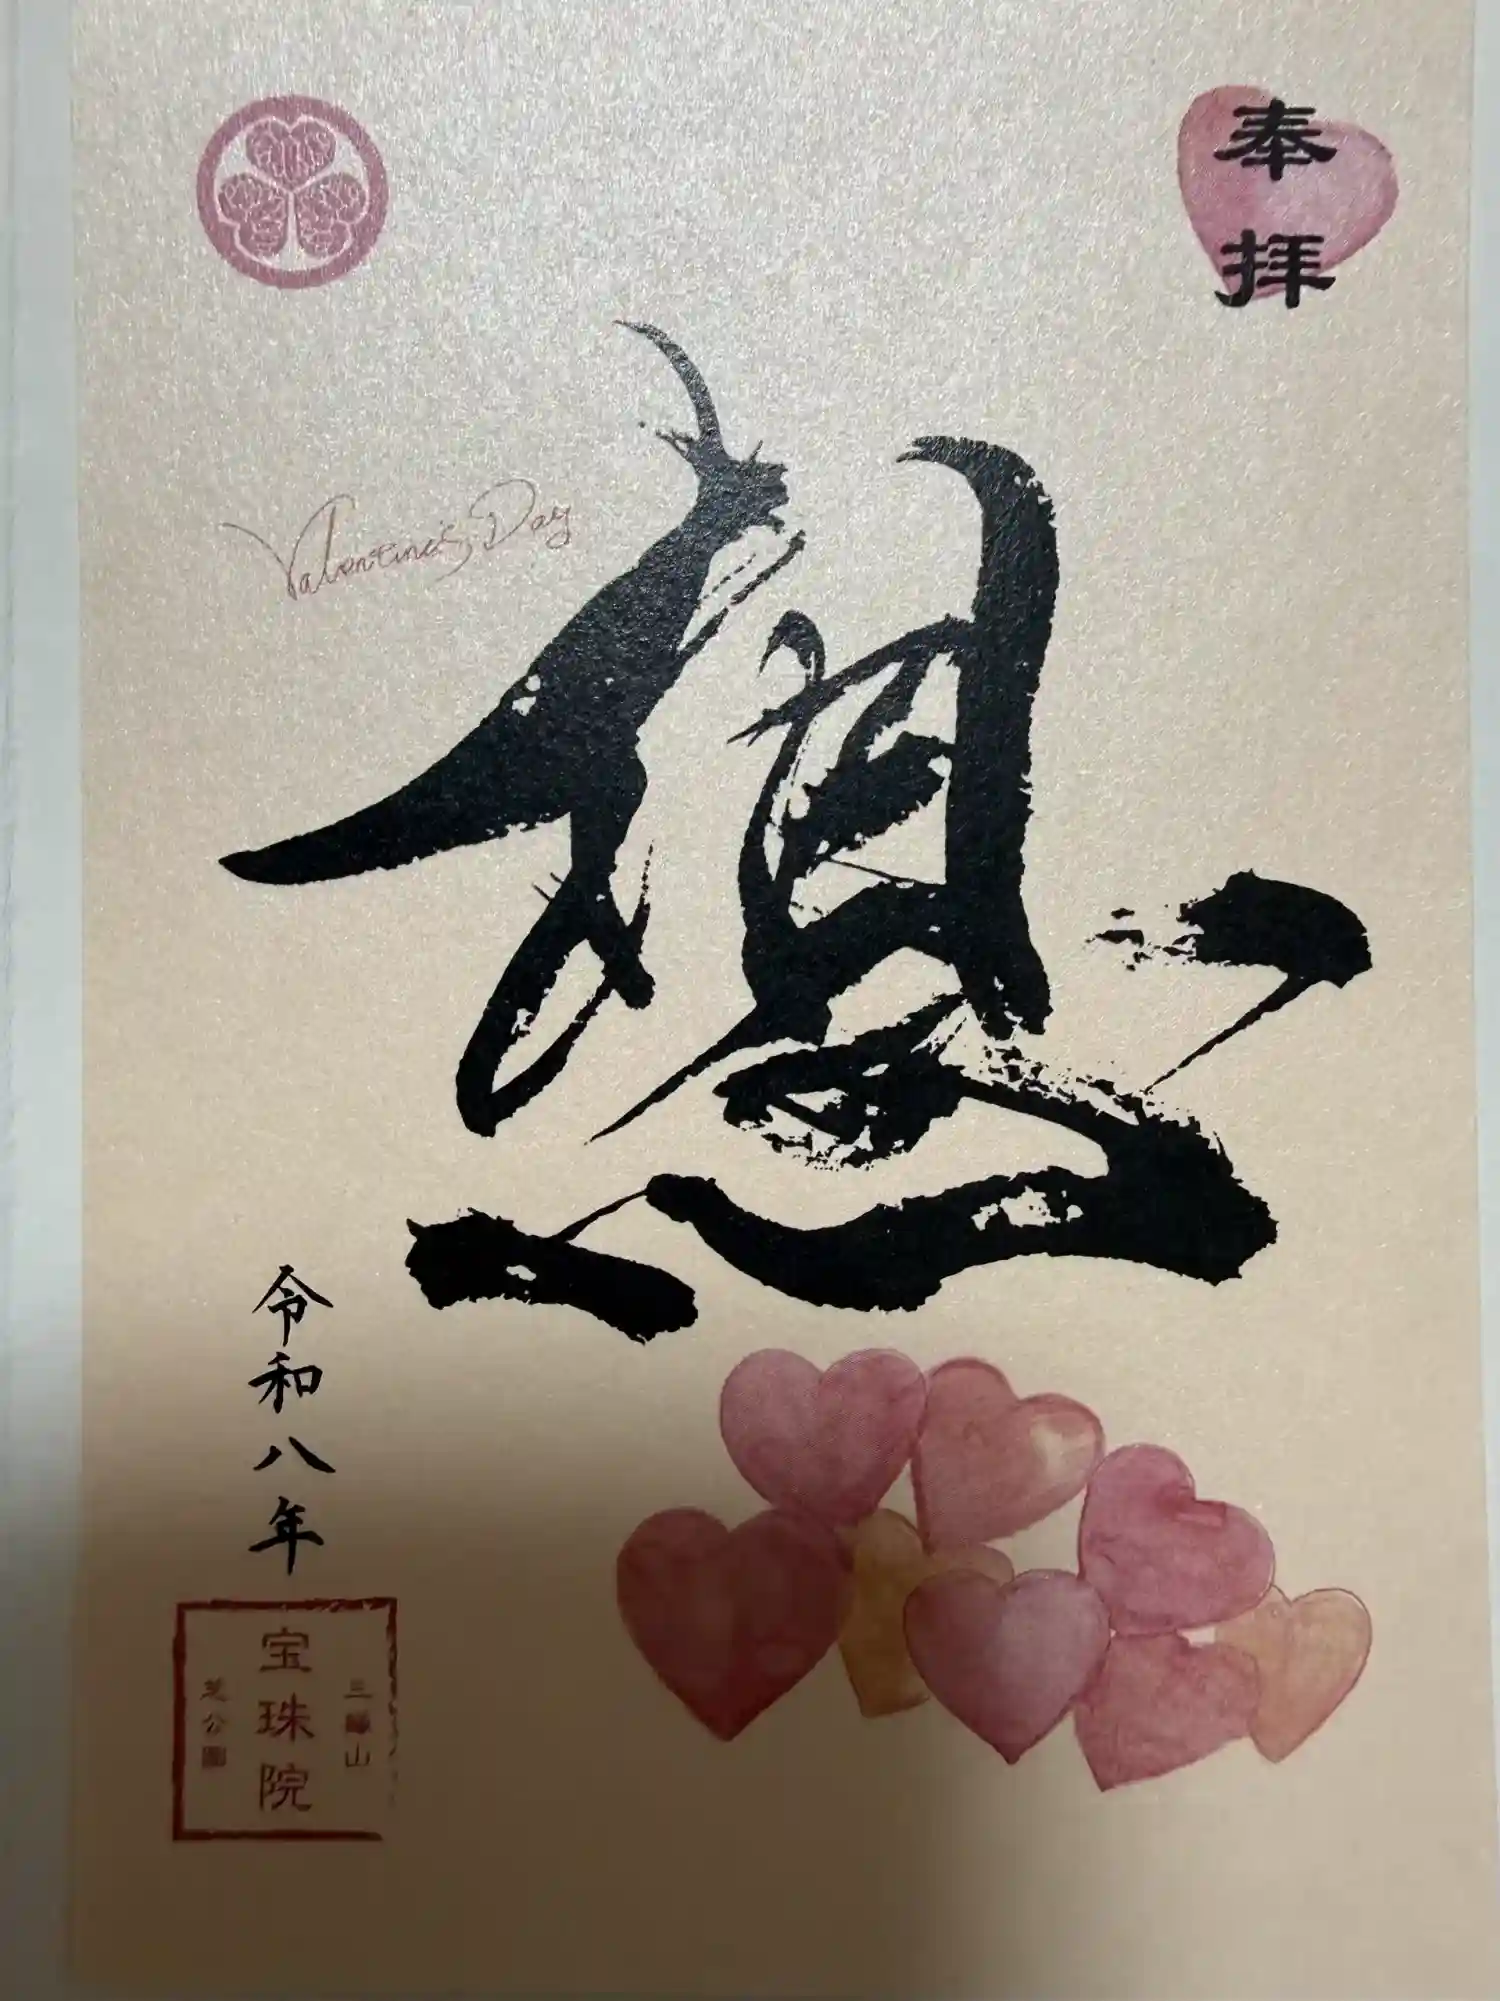 奉拝
想
Valentine's Day
令和八年
三縁山
宝珠院
芝公園